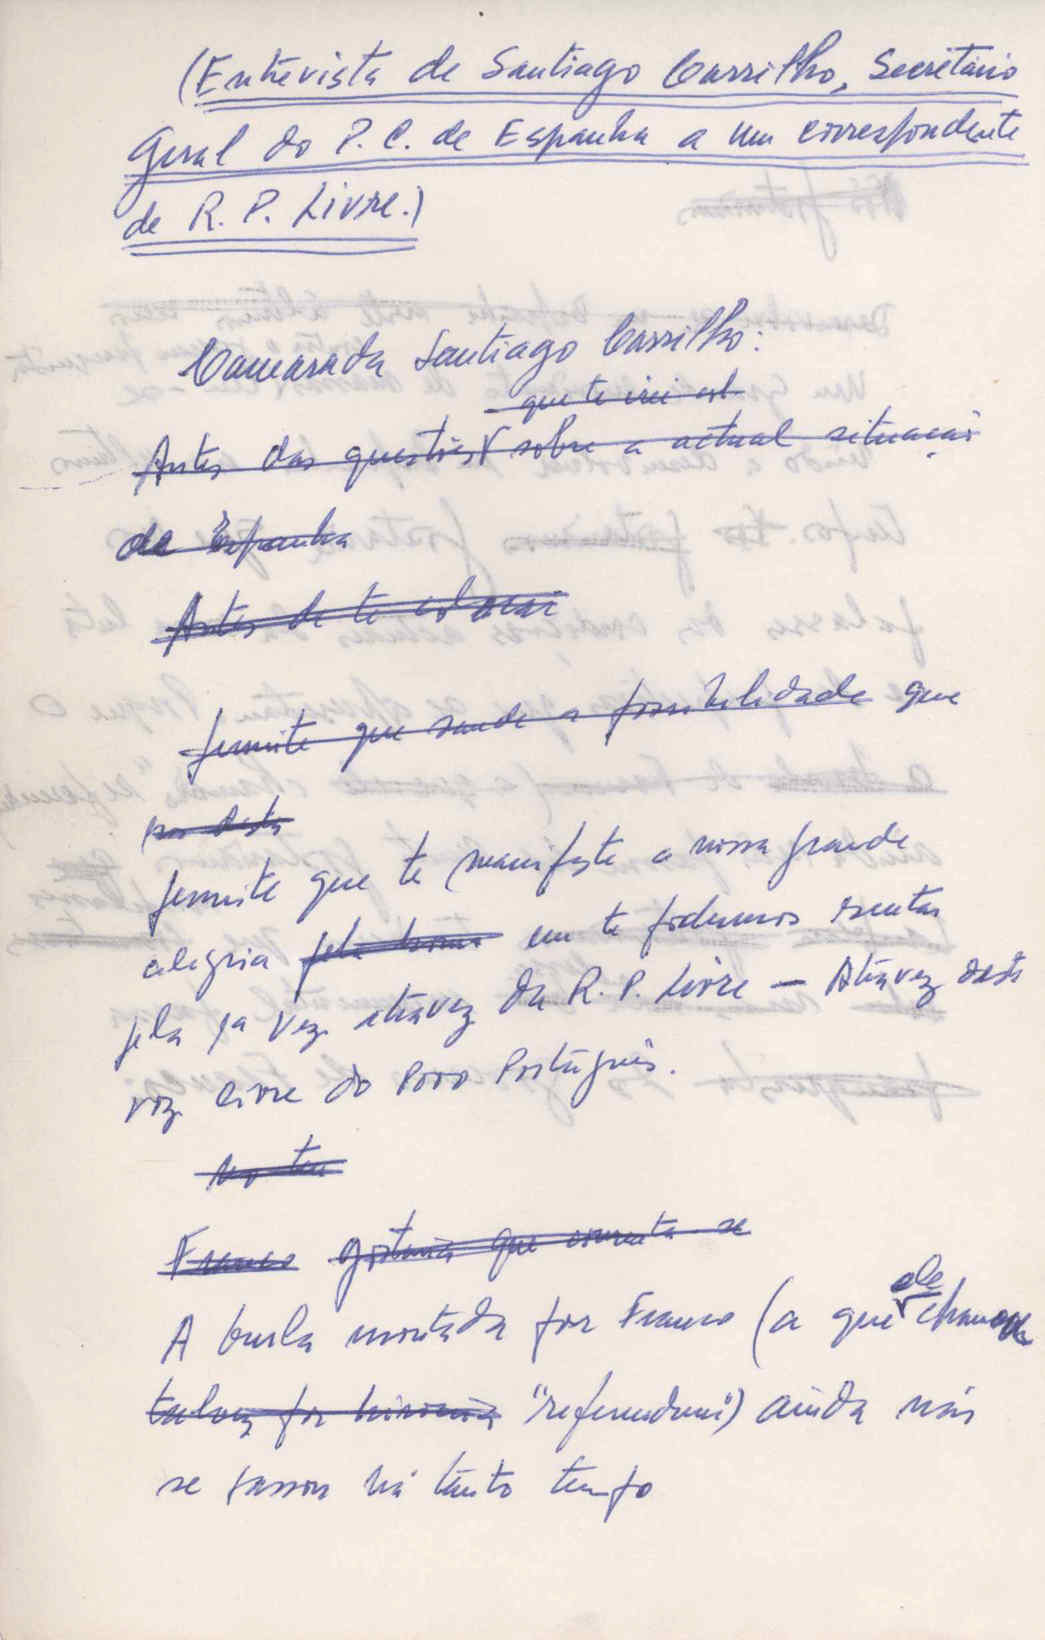 (Entrevista de Santiago Carrilho, Secretário
Geral do P. C. de Espanha a um correspondente
de R. P. Livre.)
Camarada Santiago Carrilho:
que te irei col
Antes das questões sobre a actual situação
de Espanha
Antes de te colocar
permite que saude a possibilidade que
nos desta
permite que te manifeste a nossa grande
alegria pela honra em te podermos escutar
pela 1ª vez atravez da R. P. Livre — Atravez desta
voz livre do Povo Português.
no teu
Franco gostaria que comenta se
A burla montada por Franco (a que ele chamou
talvez por hironia "referendum") ainda não
se passou há tanto tempo